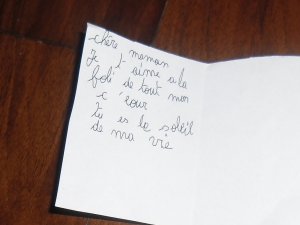 chère maman
Je t'aime a la
foli de tout mon
c'œur
tu es le soleil
de ma vie